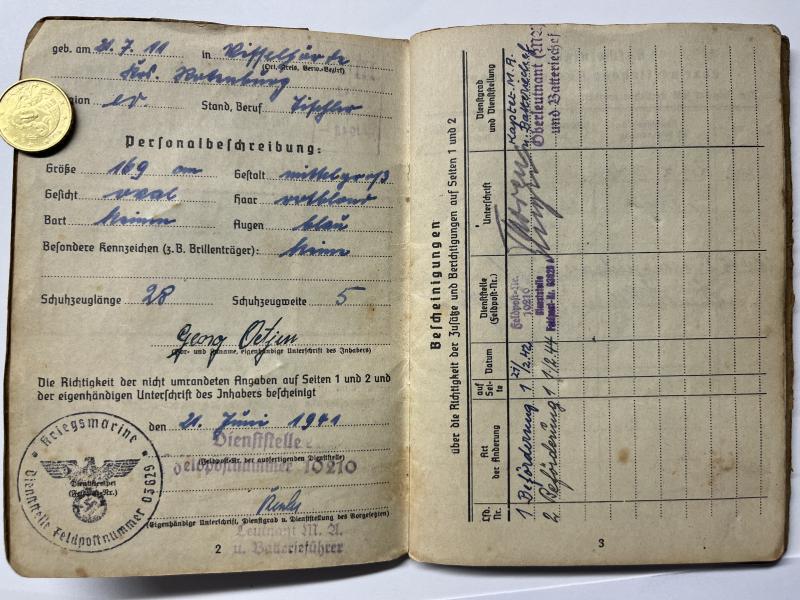 geb. am 21.7.11 in Visselhövde
(Ort, Kreis, Verw.-Bezirk)
Krs. Rotenburg
gion ev. Stand, Beruf Tischler
Personalbeschreibung:
Größe 169 cm Gestalt mittelgroß
Gesicht oval Haar rotblond
Bart keinen Augen blau
Besondere Kennzeichen (z.B. Brillenträger): keine
Schuhzeuglänge 28 Schuhzeugweite 5
Georg Oetjen
(Vor- und Zuname, eigenhändige Unterschrift des Inhabers)
Die Richtigkeit der nicht umrandeten Angaben auf Seiten 1 und 2 und
der eigenhändigen Unterschrift des Inhabers bescheinigt
den 21. Juni 1941
Dienststelle
Feldpostnummer 10210
(Feldpost-Nr. der ausfertigenden Dienststelle)
Kriegsmarine
Dienststelle Feldpostnummer 03629
Dienststempel
(Feldpost-Nr.)
(Eigenhändige Unterschrift, Dienstgrad u. Dienststellung des Vorgesetzten)
Leutnant M. A.
u. Batterieführer
2
Bescheinigungen
über die Richtigkeit der Zusätze und Berichtigungen auf Seiten 1 und 2
Lfd. Nr. Art der Änderung auf Seite Datum Dienststelle (Feldpost-Nr.) Unterschrift Dienstgrad und Dienststellung
1 Beförderung 1 1.2.42 Feldpost-Nr. 10210 Kaptlt. M.A. u. Batteriechef
2 Beförderung 1 1.12.44 Dienststelle Feldpost-Nr. Oberleutnant (MA) und Batteriechef
3